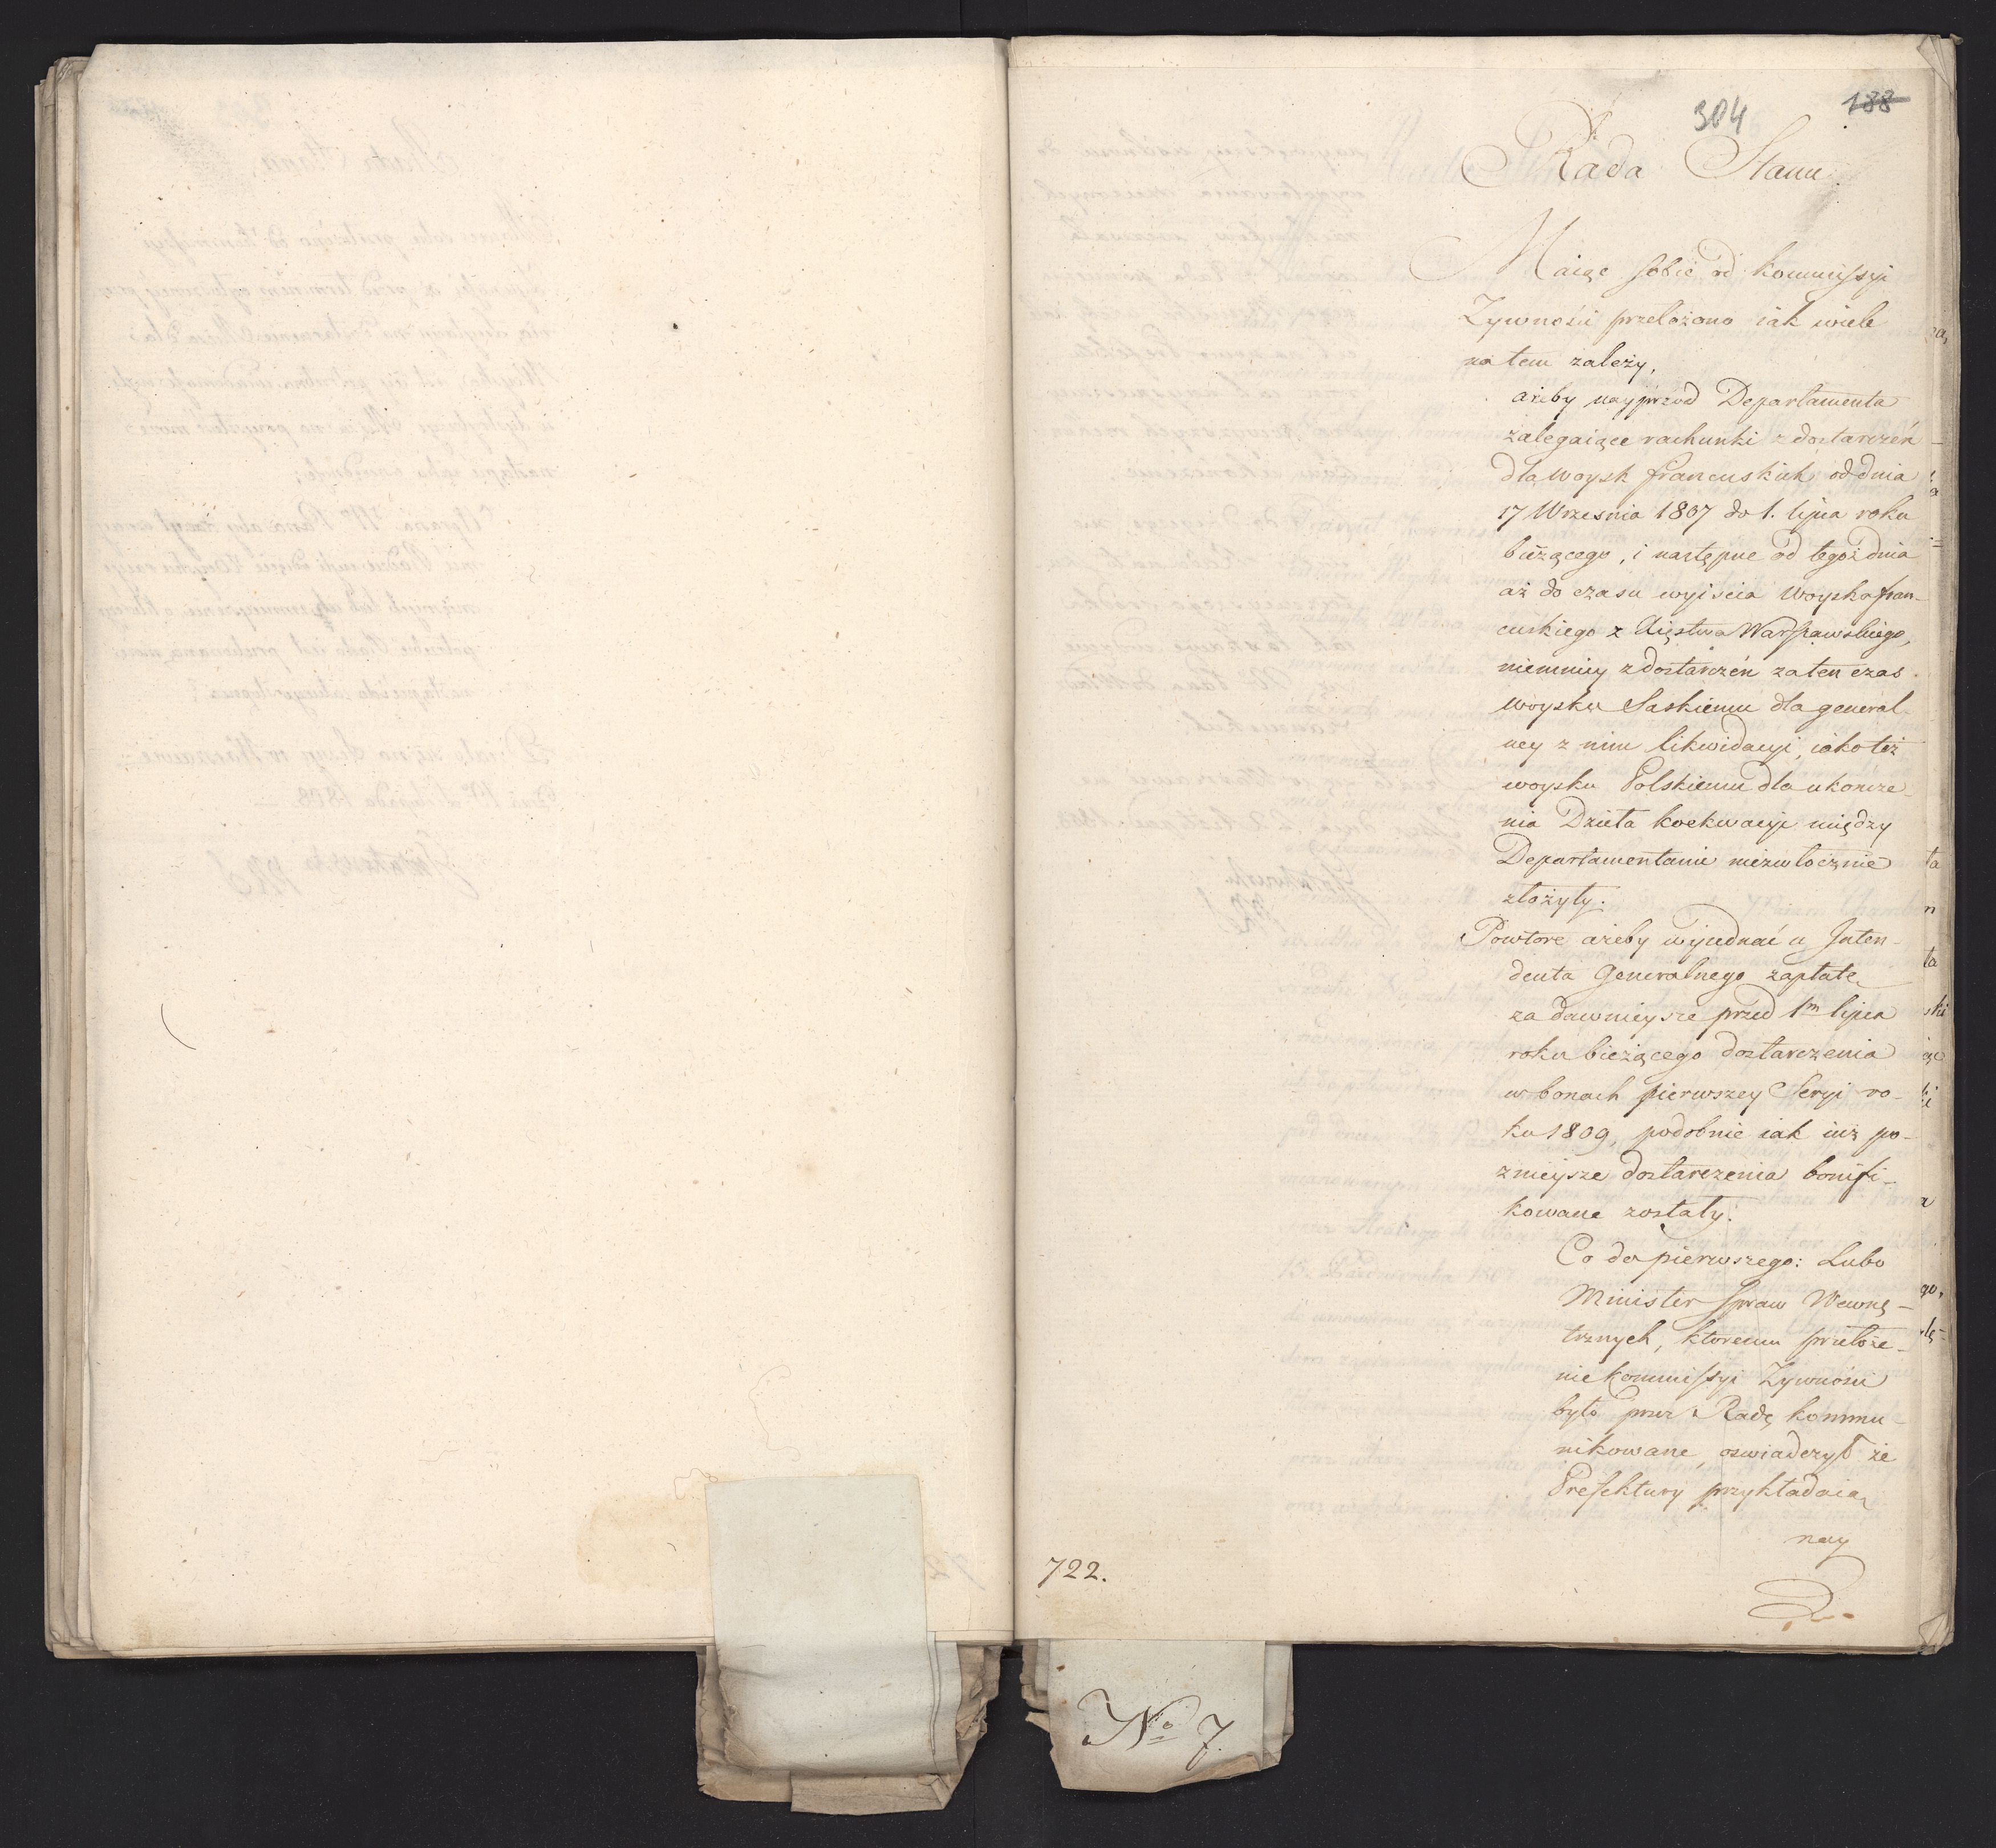 304
188
Rada Stanu.
Maiąc sobie od kommissyi
Zywności przełożono iak wiele
na tem zależy,
ażeby nayprzod Departamenta
zalegaiące rachunki z dostarczeń
dla woysk francuskich od dnia
17 Września 1807 do 1. lipca roku
bieżącego, i następne od tegoż dnia
aż do czasu wyiścia woyska fran-
cuskiego z Xięstwa Warszawskiego,
niemniey z dostarczeń za ten czas
woysku Saskiemu dla general-
ney z nim likwidacyi, iako też
woysku Polskiemu dla ukończe-
nia Dzieła koekwacyi między
Departamentami niezwłocznie
złożyły.
Powtore ażeby wyiednać u Inten-
denta Generalnego zapłatę
za dawnieysze przed 1m lipca
roku bieżącego dostarczenia
w bonach pierwszey Seryi ro-
ku 1809, podobnie iak iuż po-
znieysze dostarczenia bonifi-
kowane zostały.
Co do pierwszego: Lubo
Minister Spraw Wewnę-
trznych, ktoremu przełoże-
nie kommissyi Zywności
było przez Radę kommu-
nikowane, oswiadczył że
Prefektury przykładaią
nay
722.
No 7.